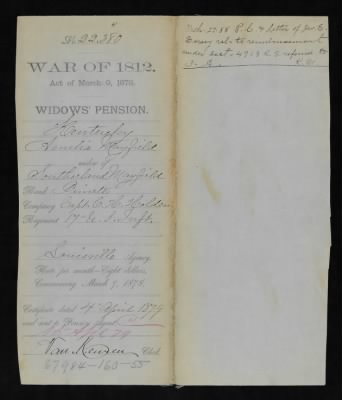 22.280
WAR OF 1812.
Act of March 9, 1878.
WIDOWS' PENSION.
Kentucky
Amelia Mayfield
widow of
Southerland Mayfield
Rank Private
Company Capt. C. H. Holder
Regiment 17" U. S. Inft.
Louisville Agency.
Rate per month—Eight dollars,
Commencing March 9, 1878.
Certificate dated 4 April 1879
and sent to Pension Agent
Van Keuren Clerk.
67984-160-55
Feb. 27. 88 P. C. & letter of Geo. C.
relate reimbursement
under sect. 4718 R. S. referred to